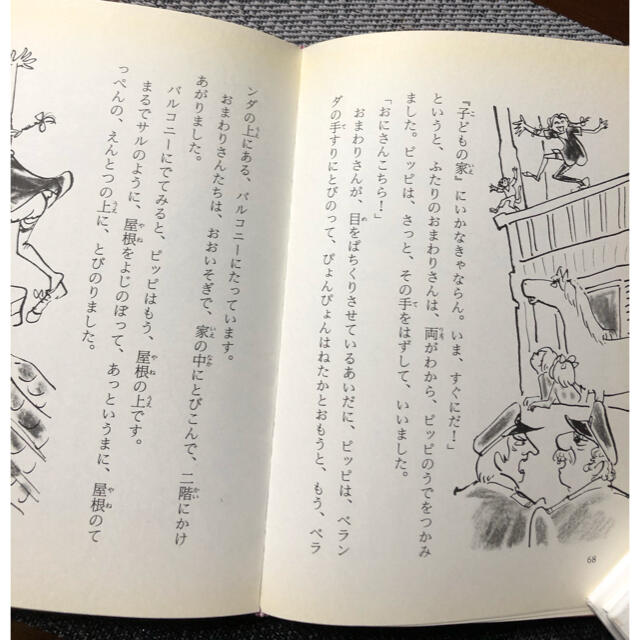 『子どもの家』にいかなきゃならん。いま、すぐにだ！」
というと、ふたりのおまわりさんは、両がわから、ピッピのうでをつかみ
ました。ピッピは、さっと、その手をはずして、いいました。
「おにさんこちら！」
おまわりさんが、目をぱちくりさせているあいだに、ピッピは、ベラン
ダの手すりにとびのって、ぴょんぴょんはねたかとおもうと、もう、ベラ
68
ンダの上にある、バルコニーにたっています。
おまわりさんたちは、おおいそぎで、家の中にとびこんで、二階にかけ
あがりました。
バルコニーにでてみると、ピッピはもう、屋根の上です。
まるでサルのように、屋根をよじのぼって、あっというまに、屋根のて
っぺんの、えんとつの上に、とびのりました。